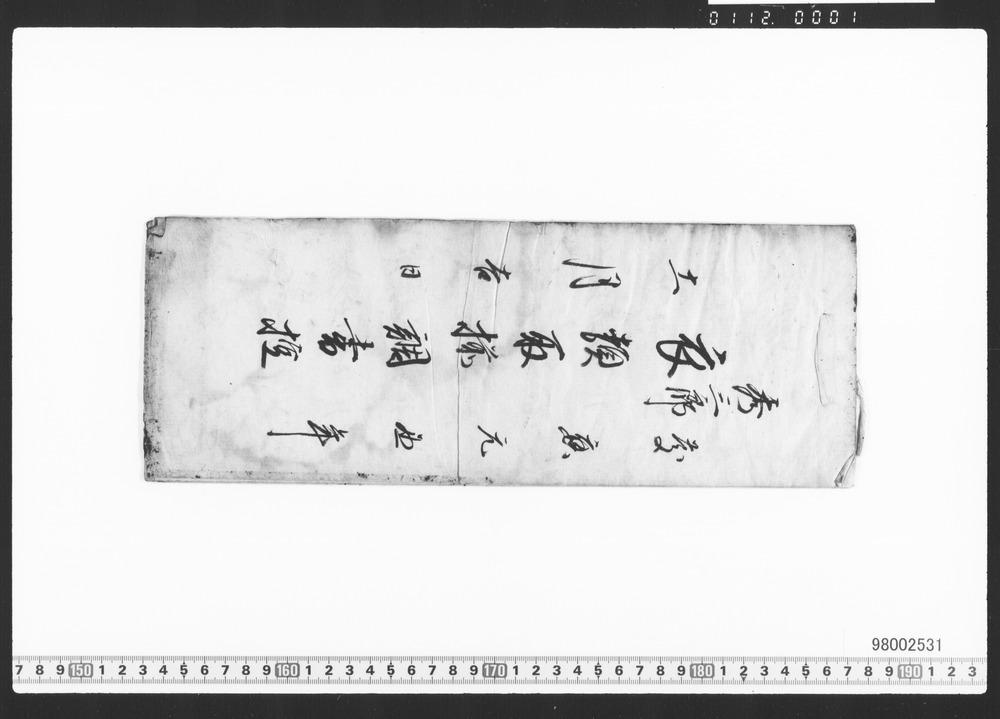 慶應元丑年
秀三郎
衣類取揃調書控
月吉日
0112. 0001
98002531
7 8 9 150 1 2 3 4 5 6 7 8 9 160 1 2 3 4 5 6 7 8 9 170 1 2 3 4 5 6 7 8 9 180 1 2 3 4 5 6 7 8 9 190 1 2 3